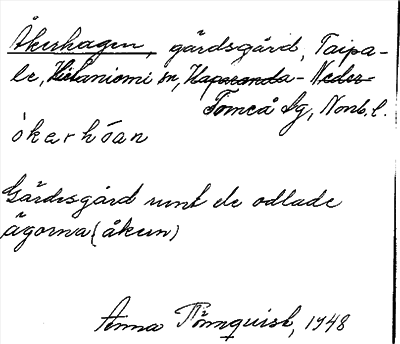 Åkerhagen, gärdsgård, Taipa-
le, Hietaniemi sn, Haparanda- Neder-
Torneå lg, Norrb. l.
òkerhōan
Gärdsgård runt de odlade
ägorna (åkern)
Anna Törnquist, 1948